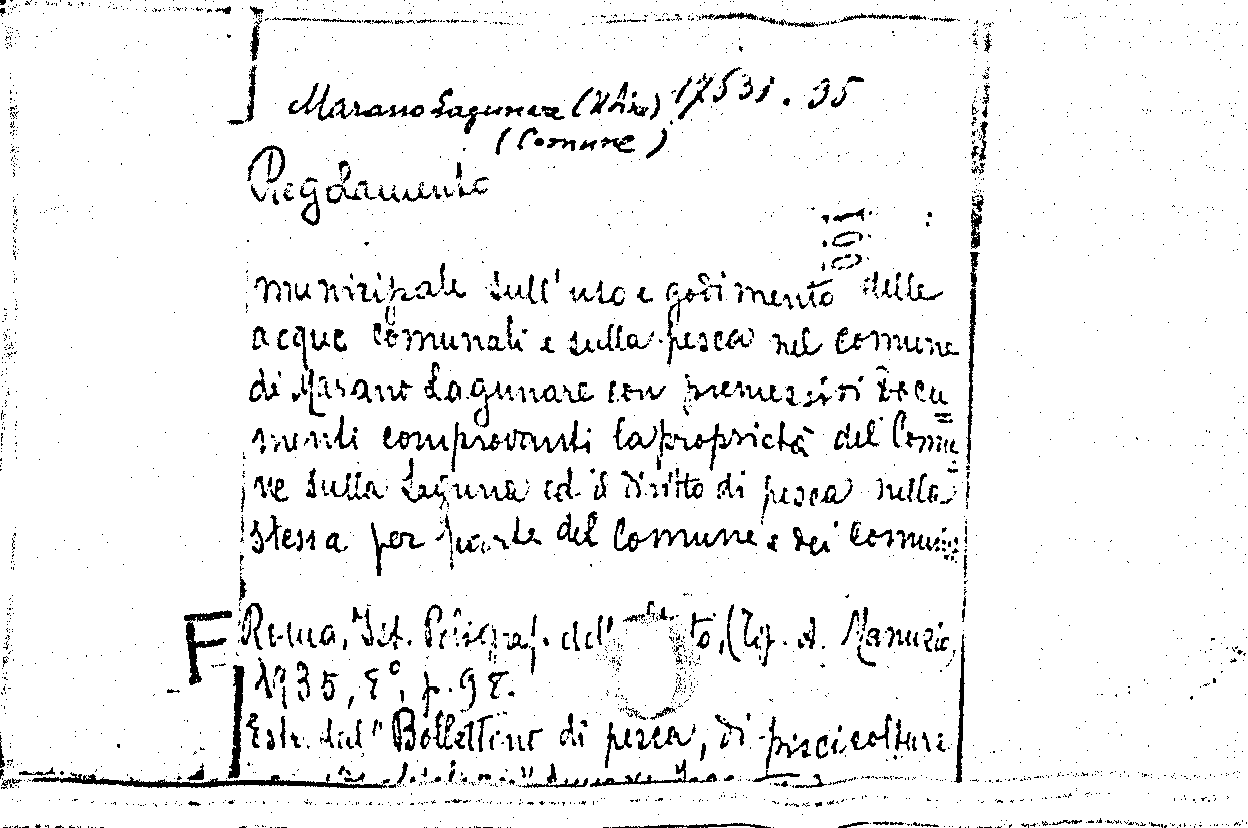 Marano Lagunare (Udine) 17531.35
(Comune)
Regolamento
001
municipale sull'uso e godimento delle
acque comunali e sulla pesca nel Comune
di Marano Lagunare con premessivi docu=
menti comprovanti la proprietà del Comu=
ne sulla Laguna ed il diritto di pesca nella
stessa per parte del Comune e dei Comunis
F
Roma, Ist. Poligraf. dell' (Tip. A. Manuzio)
1935, 8°, p. 98.
Estr. dal "Bollettino di pesca, di piscicoltura